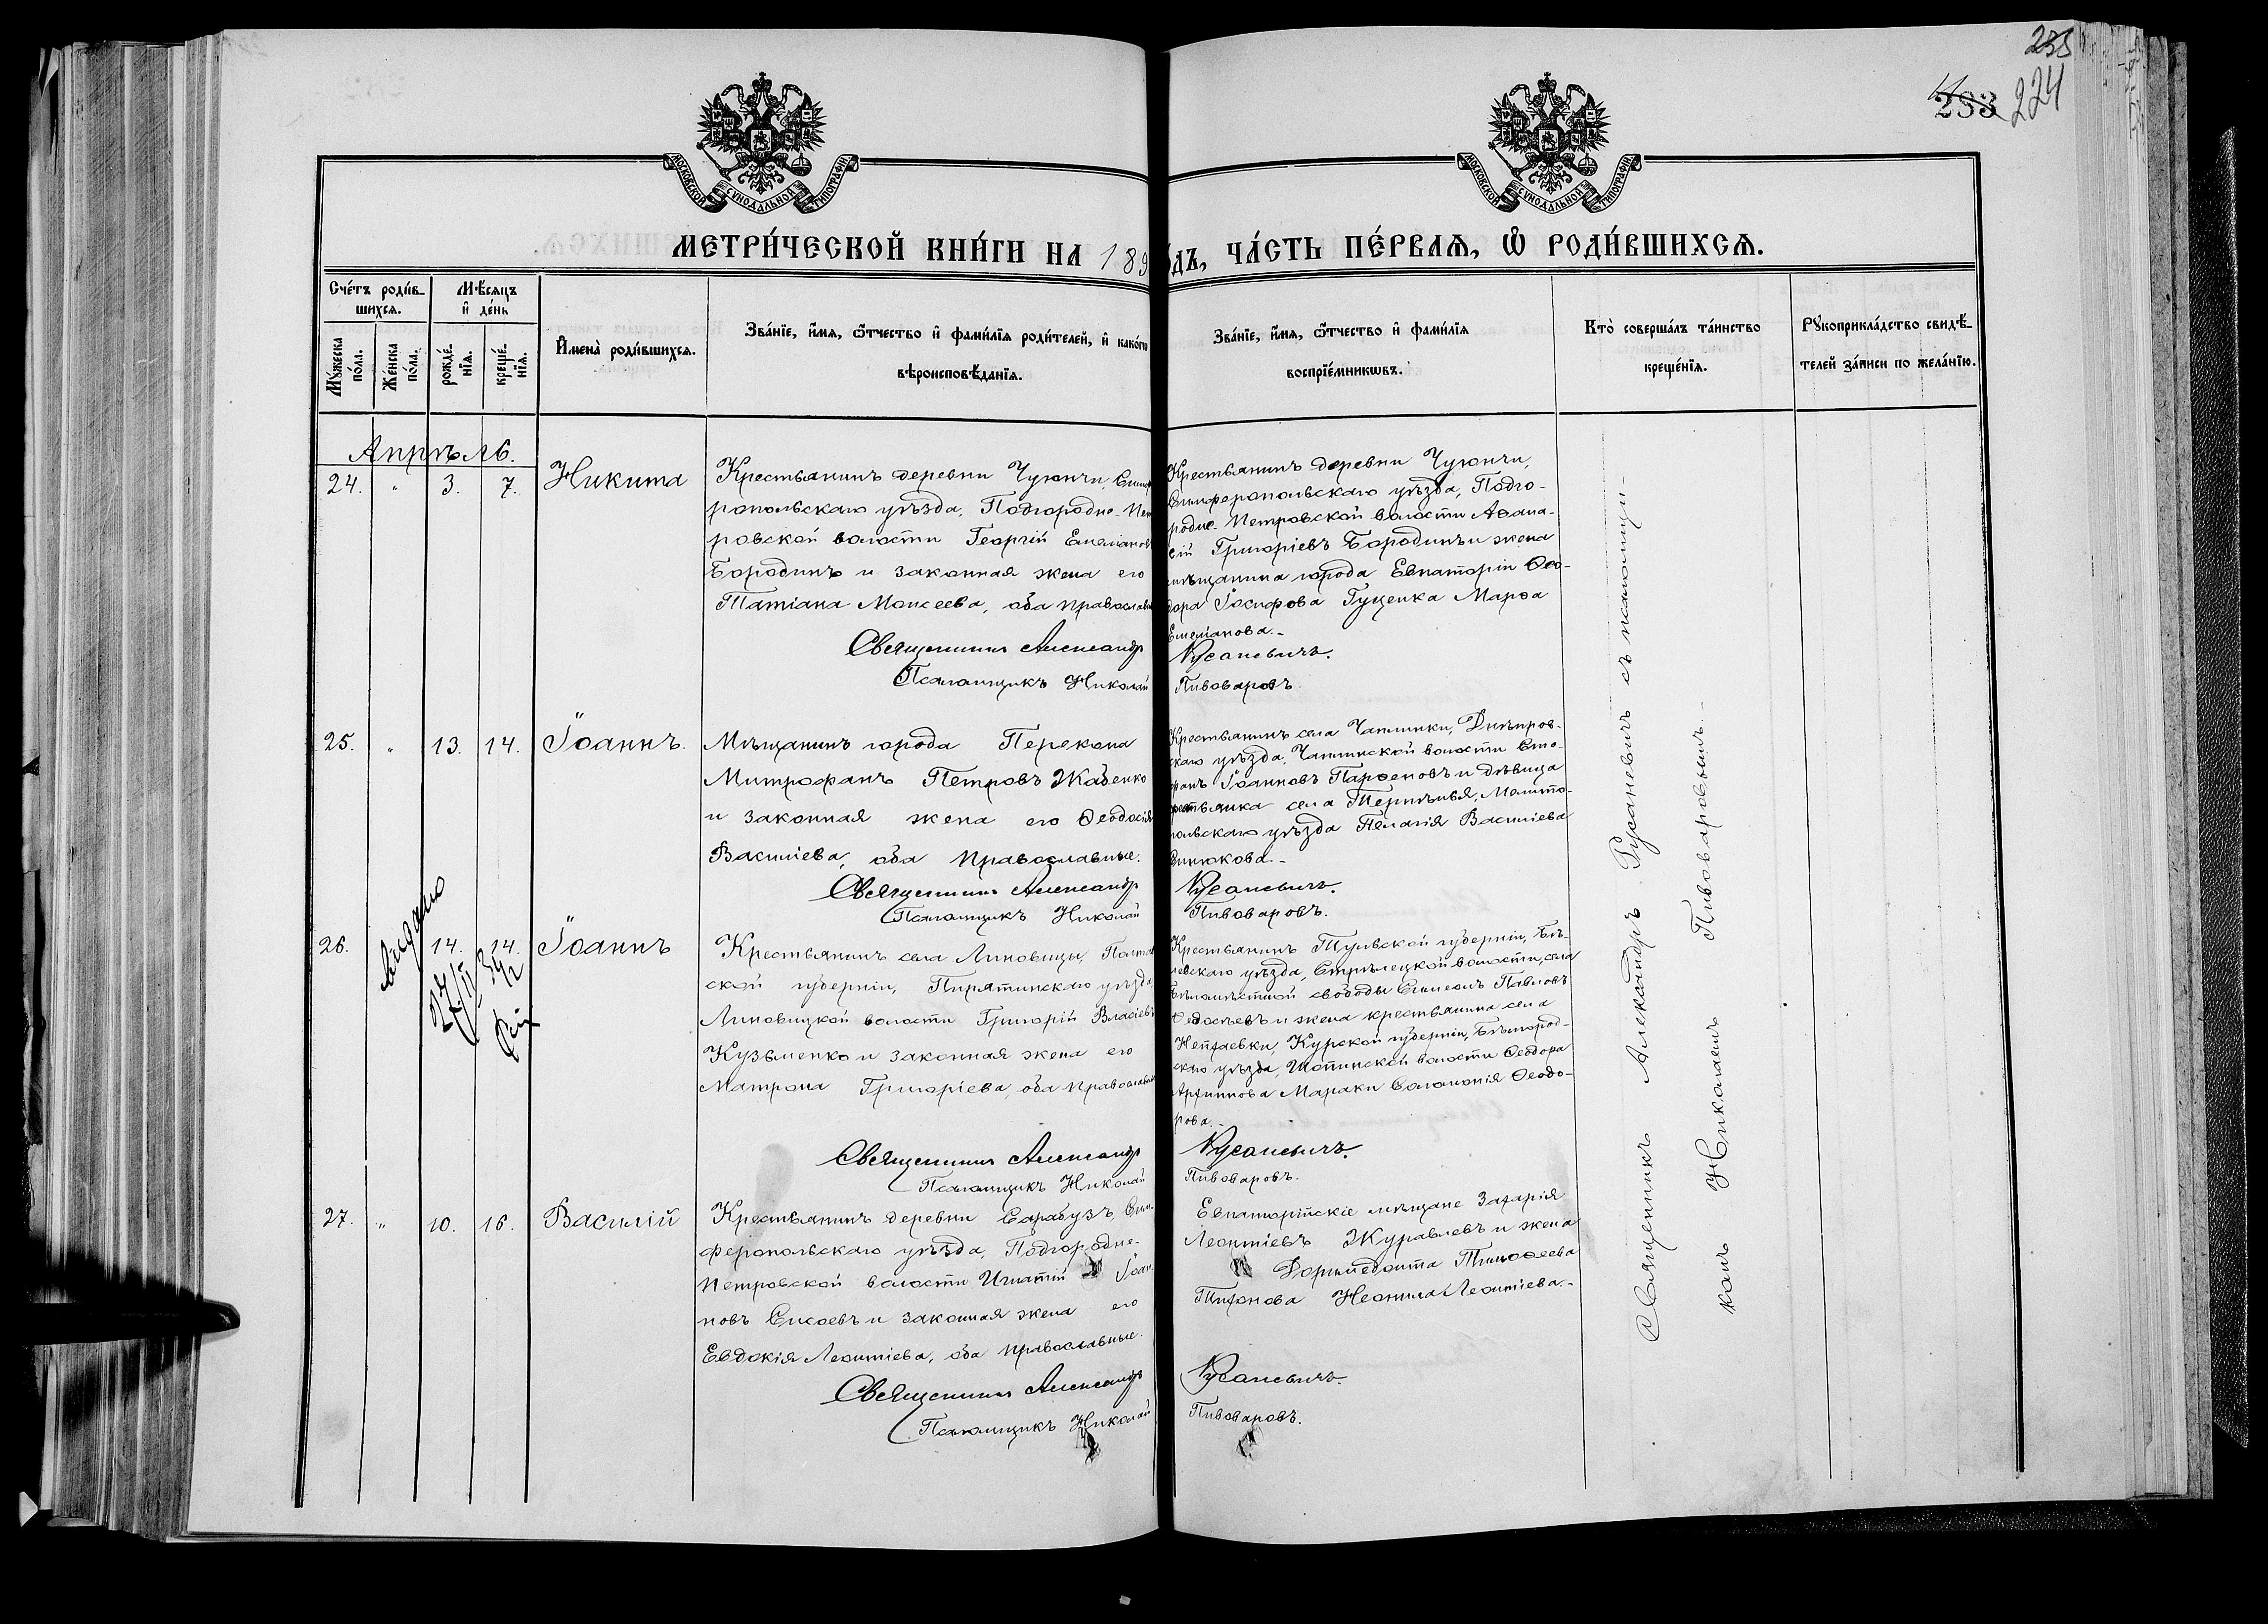 255
293 224
МОСКОВСКОЙ СѴНОДАЛЬНОЙ ТИПОГРАФІИ
МОСКОВСКОЙ СѴНОДАЛЬНОЙ ТИПОГРАФІИ
МЕТРИ́ЧЕСКОЙ КНИ́ГИ НА 189
ДЪ, ЧА́СТЬ ПЕ́РВАЯ, Ѡ РОДИ́ВШИХСѦ.
Сче́тъ роди́в-
шихсѧ.
Мѣ́сѧцъ
и҆ де́нь
Мꙋ́жеска по́ла.
Же́нска по́ла.
рожде́-нїѧ.
креще́-нїѧ.
И҆мена̀ роди́вшихсѧ.
Зва́нїе, и҆́мѧ, ѻ҆́тчество и҆ фами́лїѧ роди́телей, и҆ како́гѡ
вѣроисповѣ́данїѧ.
Зва́нїе, и҆́мѧ, ѻ҆́тчество и҆ фами́лїѧ
воспрїе́мникѡвъ.
Кто̀ соверша́лъ та́инство
креще́нїѧ.
Рꙋкоприкла́дство свидѣ́-
телей за́писи по жела́нїю.
Апрѣль.
24. " 3. 7. Никита
Крестьянинъ деревни Чуюнчи, Симфе
ропольскаго уѣзда, Подгородне-Пет
ровской волости Георгій Емеліановъ
Бородинъ и законная жена его
Татіана Моисеева, оба православн
Священникъ Александр
Псаломщикъ Николай
Крестьянинъ деревни Чуюнчи,
Симферопольскаго уѣзда, Подго-
родне-Петровской волости Аѳана-
сій Григоріевъ Бородинъ и жена
мѣщанина города Евпаторіи Ѳео-
дора Іосифова Гуценка Марѳа
Емеліанова.-
Русаневичъ.
Пивоваровъ.
25. " 13. 14. Іоаннъ.
Мѣщанинъ города Перекопа
Митрофанъ Петровъ Жабенко
и законная жена его Ѳеодосія
Василіева, оба православные.
Священникъ Александр
Псаломщикъ Николай
Крестьянинъ села Чаплинки, Днѣпров-
скаго уѣзда, Чаплинской волости Сте-
фанъ Іоанновъ Парѳеновъ и дѣвица
крестьянка села Терпѣнья, Мелито-
польскаго уѣзда Пелагія Василіева
Синюкова.-
Русаневичъ.
Пивоваровъ.
26. 14. 14. Іоаннъ
выдано
27/II
Крестьянинъ села Линовицы, Полтав
ской губерніи, Пирятинскаго уѣзда,
Линовицкой волости Григорій Власіевъ
Кузьменко и законная жена его
Матрона Григоріева, оба православн
Священникъ Александр
Псаломщикъ Николай
Крестьянинъ Тульской губерніи, Бѣ-
левскаго уѣзда, Стрѣлецкой волости, села
Бѣломѣстной свободы Симеонъ Павловъ
Ѳедосѣевъ и жена крестьянина села
Нехаевки, Курской губерніи, Бѣлгород-
скаго уѣзда, Шопинской волости Ѳеодора
Архиппова Мараки Соломонія Ѳеодо-
рова.-
Русаневичъ.
Пивоваровъ.
27. " 10. 16. Василій
Крестьянинъ деревни Сарабузъ, Сим-
феропольскаго уѣзда, Подгородне-
Петровской волости Игнатій Іоан-
новъ Сисоевъ и законная жена его
Евдокія Леонтіева, оба православные.
Священникъ Александр
Псаломщикъ Николай
Евпаторійскіе мѣщане Захарія
Леонтіевъ Журавлевъ и жена
Дормедонта Тимоѳеева
Тихонова Неонила Леонтіева.-
Русаневичъ.
Пивоваровъ.
Священникъ Александръ Русаневичъ съ псаломщи-
комъ Николаемъ Пивоваровымъ.-